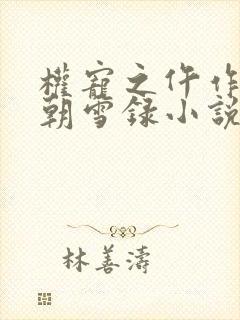 權寵之仵作
朝雪録小說
林善濤